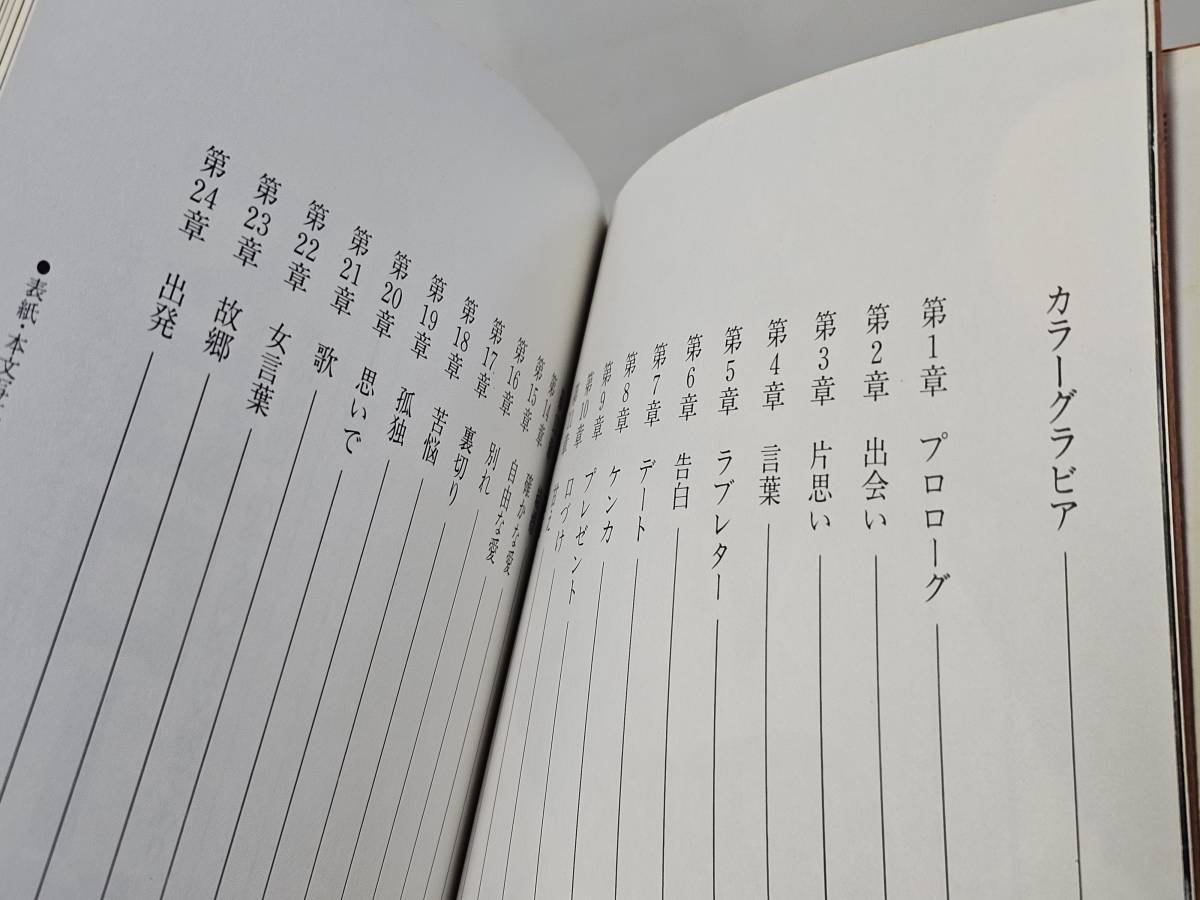 カラーグラビア
第1章 プロローグ
第2章 出会い
第3章 片思い
第4章 言葉
第5章 ラブレター
第6章 告白
第7章 デート
第8章 ケンカ
第9章 プレゼント
第10章 口づけ
甘え
第14章
第15章 確かな愛
第16章 自由な愛
第17章 別れ
第18章 裏切り
第19章 苦悩
第20章 孤独
第21章 思いで
第22章 歌
第23章 女言葉
第24章 故郷
出発
●表紙・本文